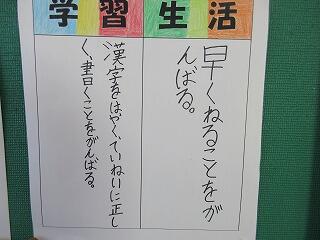 学習生活
早くねることをが
んばる。
漢字をはやく、ていねいに正し
く、書くことをがんばる。